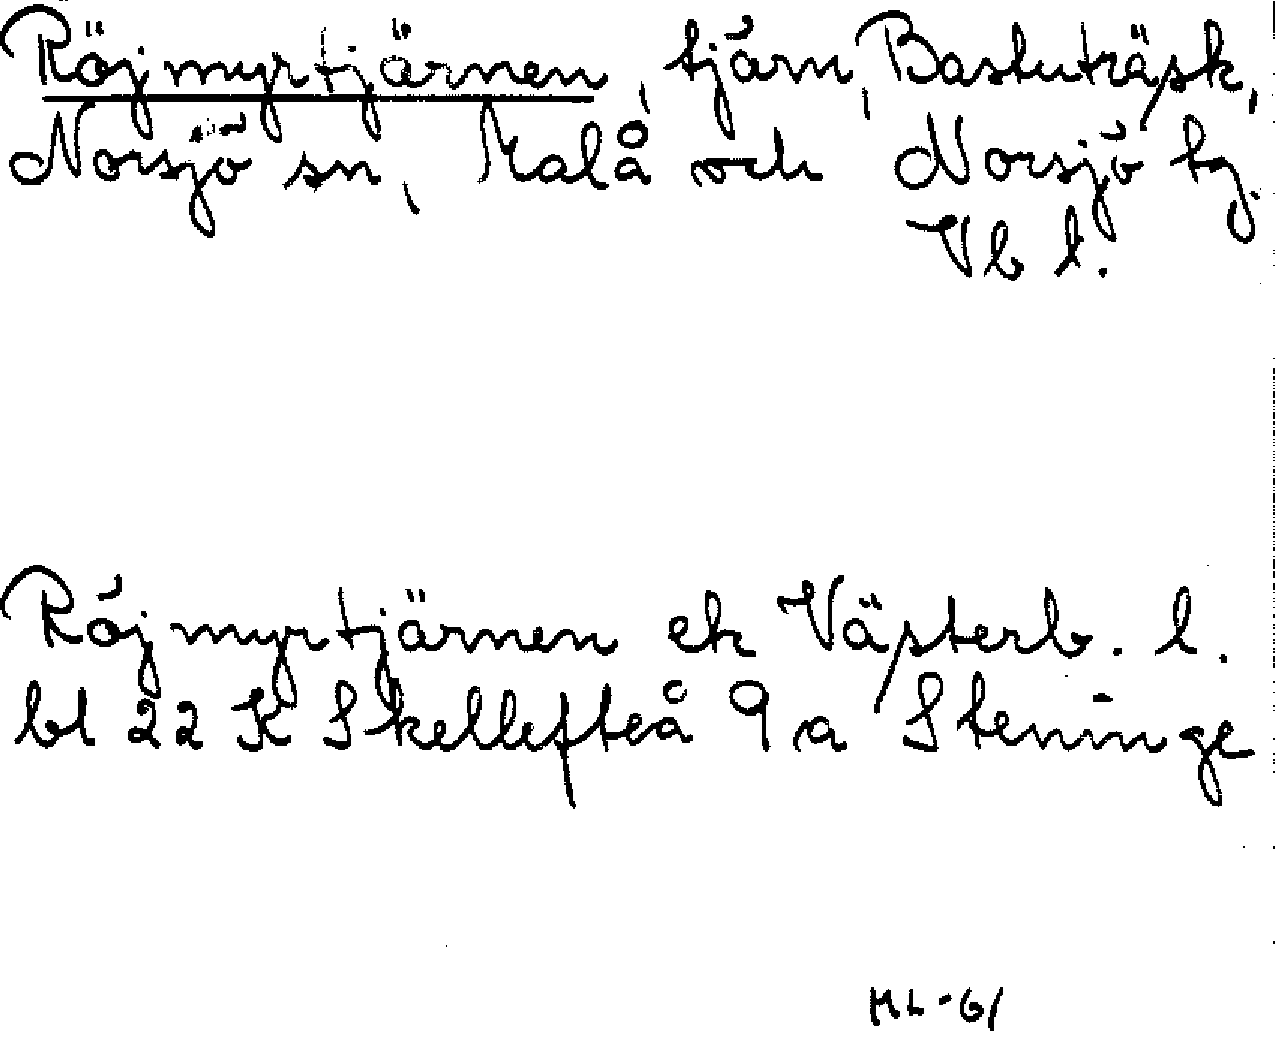 Röjmyrtjärnen, tjärn, Bastuträsk,
Norsjö sn, Malå och Norsjö tg.
Vb l.
Röjmyrtjärnen ek Västerb. l.
bl 22 K Skellefteå 9 a Steninge
ML-61